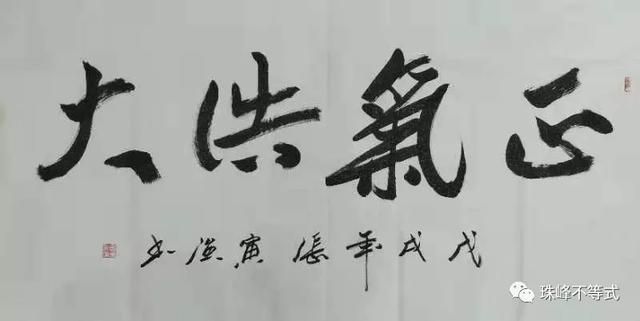 正氣浩大
戊戌年张寅书
珠峰不等式